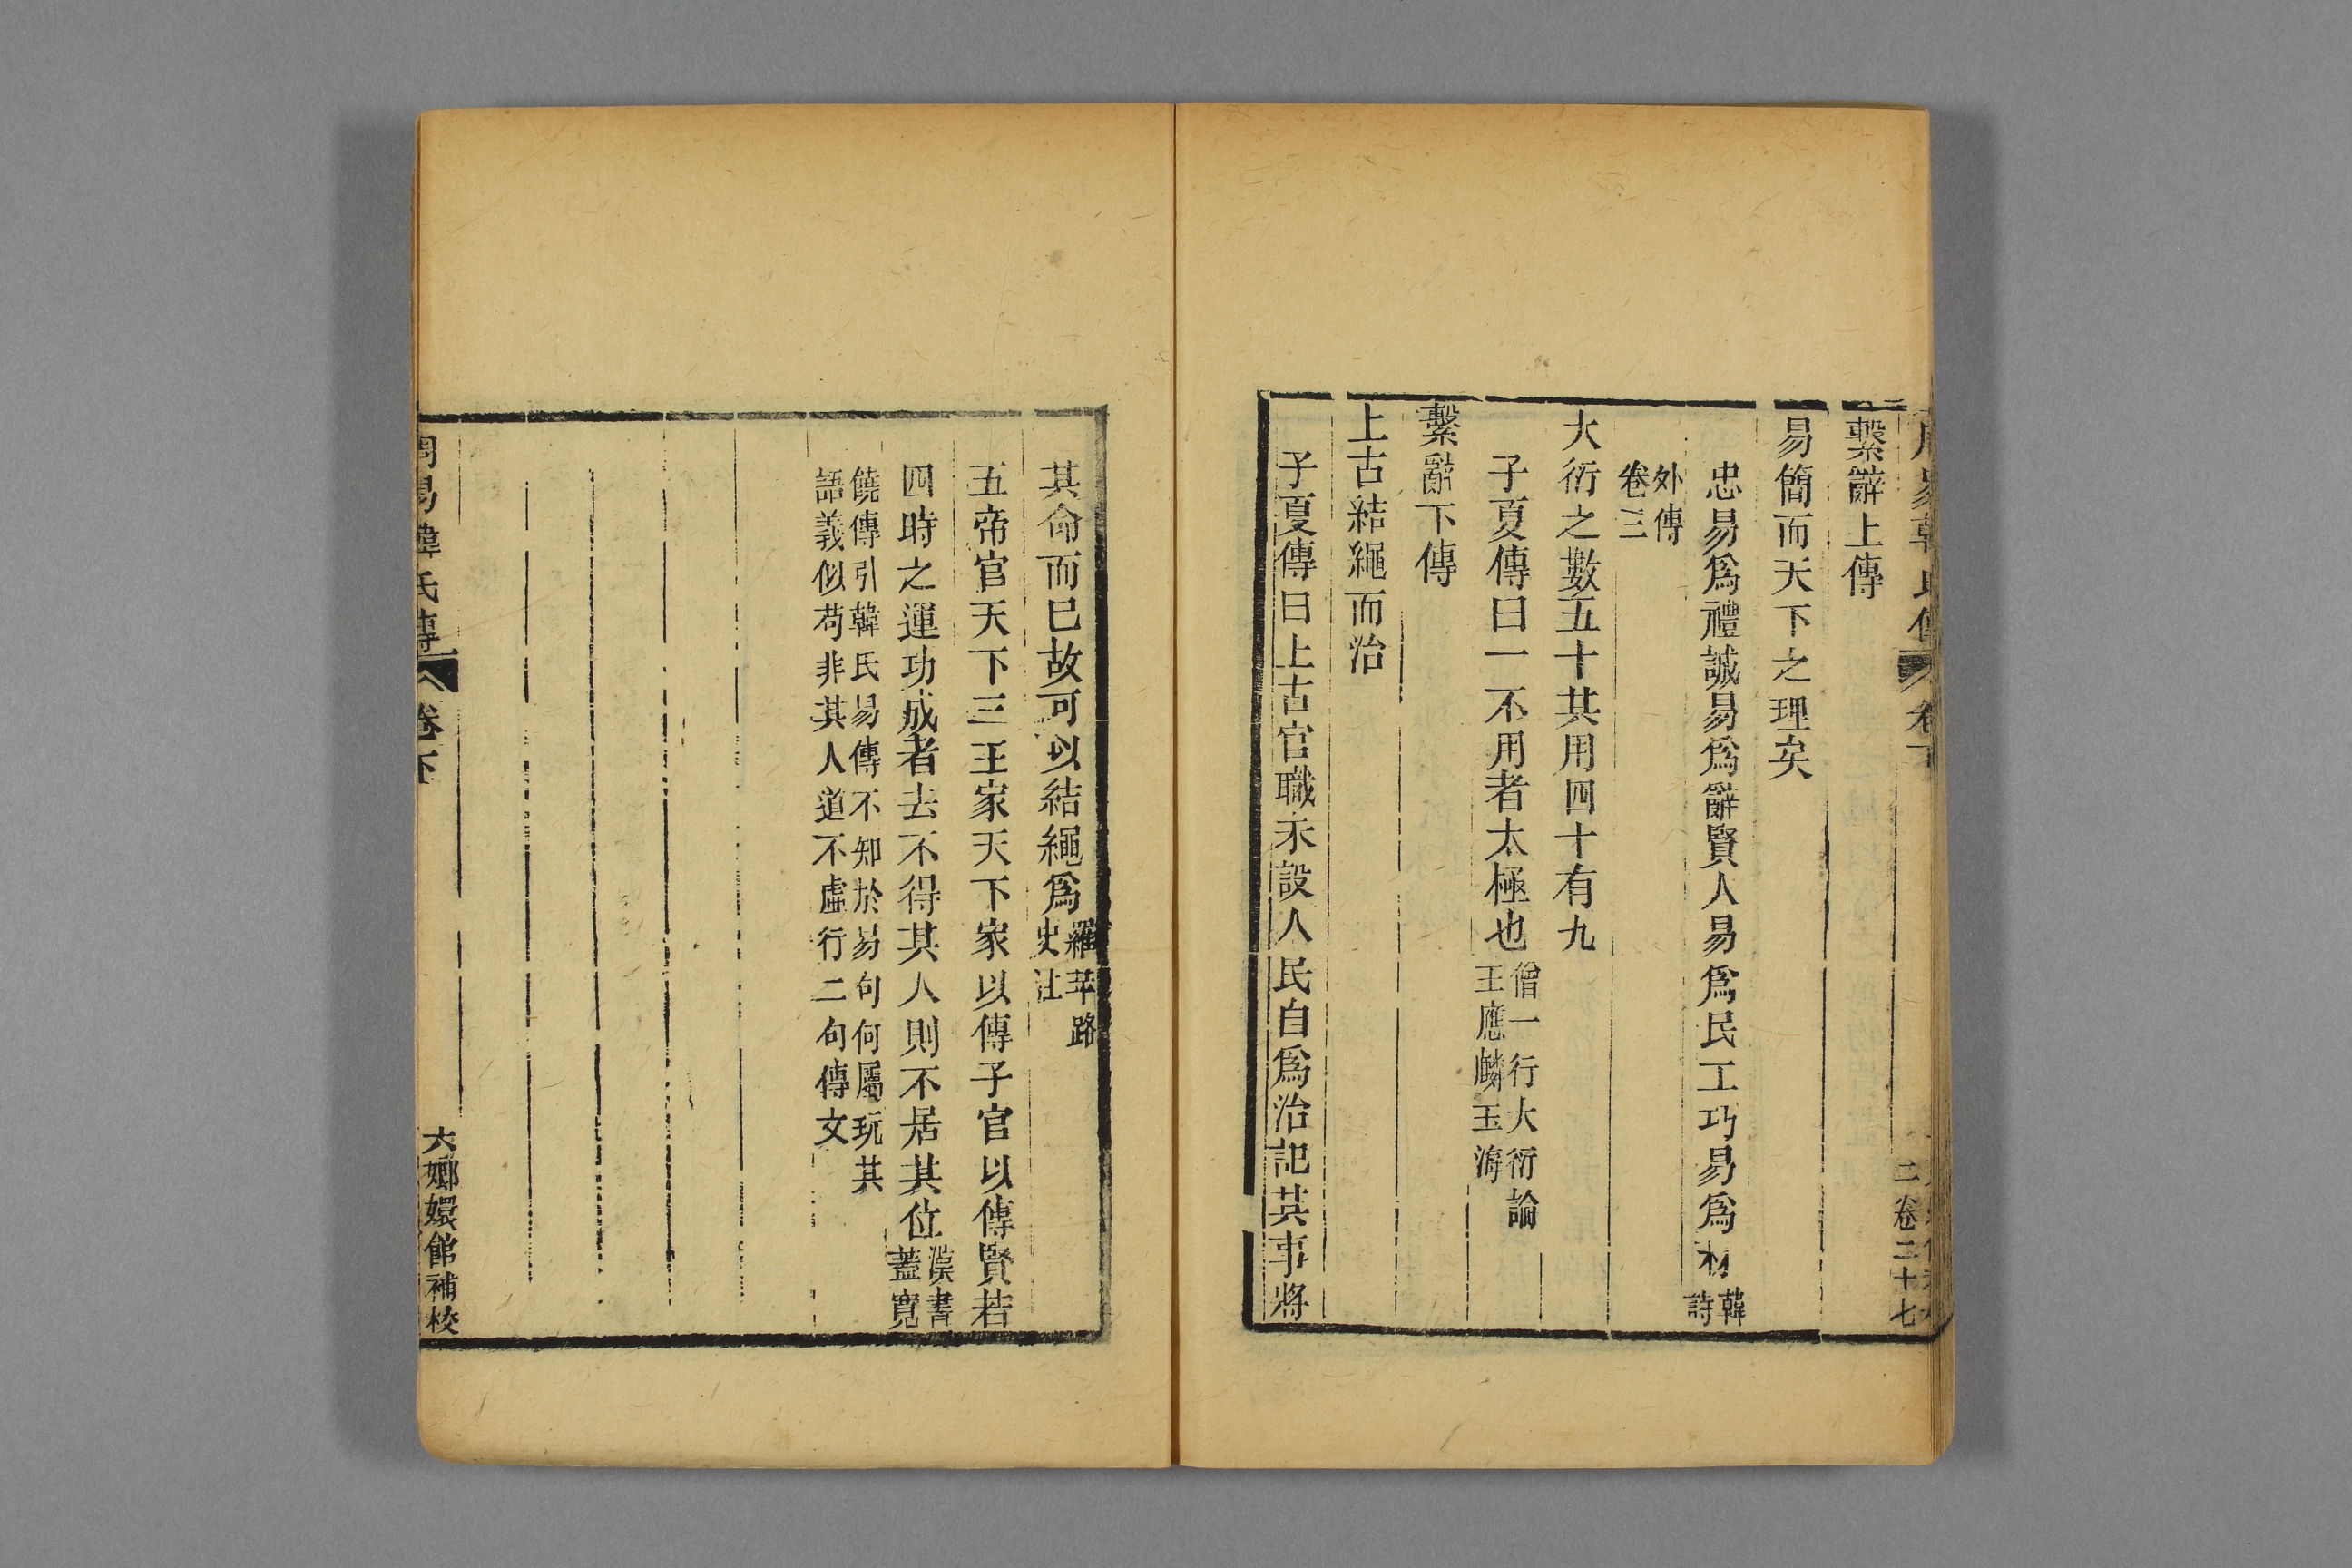 周易韓氏傳 卷下
二 卷二十七
繫辭上傳
易簡而天下之理矣
忠易爲禮誠易爲辭賢人易爲民工巧易爲材韓詩
外傳
卷三
大衍之數五十其用四十有九
子夏傳曰一不用者太極也僧一行大衍論
王應麟玉海
繫辭下傳
上古結繩而治
子夏傳曰上古官職未設人民自爲治記其事將
其命而已故可以結繩爲羅苹路
史注
五帝官天下三王家天下家以傳子官以傳賢若
四時之運功成者去不得其人則不居其位漢書
蓋寬
饒傳引韓氏易傳不知於易句何屬玩其
語義似苟非其人道不虛行二句傳文
周易韓氏傳 卷下
六嫏嬛館補校